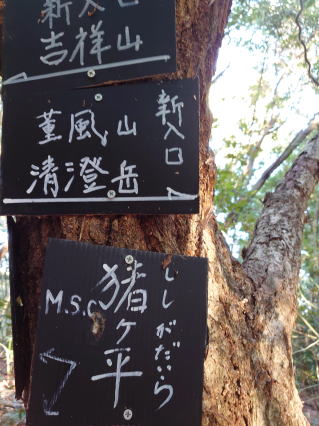 新入口
吉祥山
新入口
菫風山
清澄岳
ししがだいら
猪ケ平
M.S.C